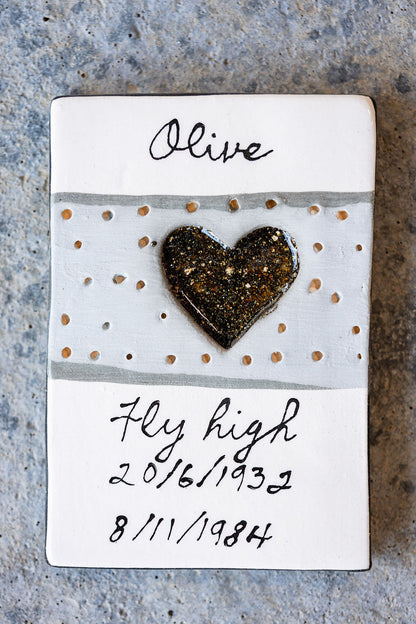 Olive
Fly high
20/6/1932
8/11/1984